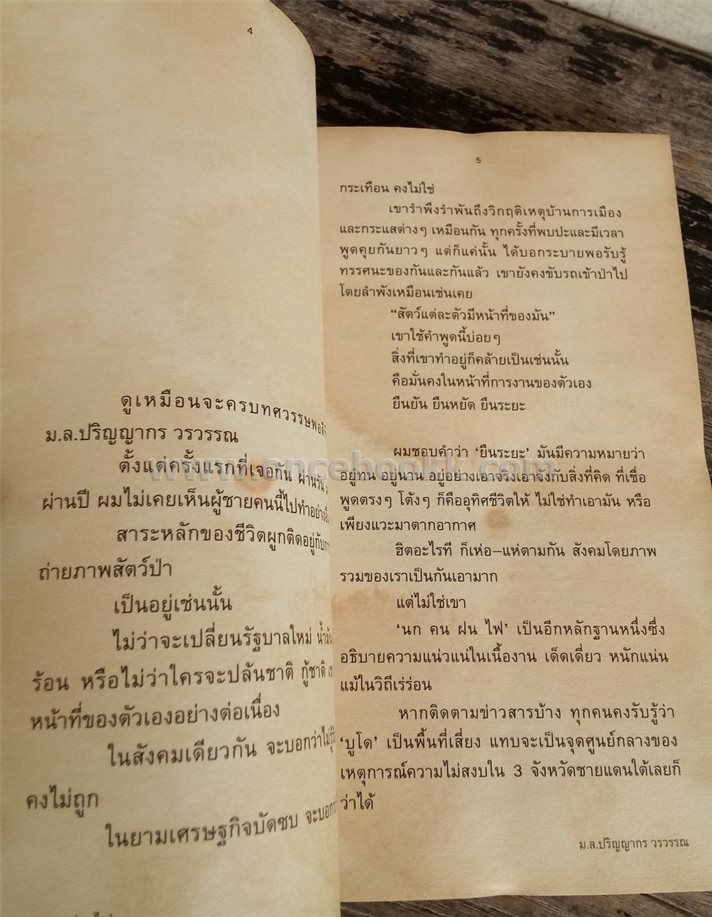 4
ดูเหมือนจะครบทศวรรษพอดี
ม.ล.ปริญญากร วรวรรณ
ตั้งแต่ครั้งแรกที่เจอกัน ผ่านวัน
ผ่านปี ผมไม่เคยเห็นผู้ชายคนนี้ไปทำอย่าง
สาระหลักของชีวิตผูกติดอยู่กับ
ถ่ายภาพสัตว์ป่า
เป็นอยู่เช่นนั้น
ไม่ว่าจะเปลี่ยนรัฐบาลใหม่
ร้อน หรือไม่ว่าใครจะปล้นชาติ กู้ชาติ
หน้าที่ของตัวเองอย่างต่อเนื่อง
ในสังคมเดียวกัน จะบอกว่า
คงไม่ถูก
ในยามเศรษฐกิจบัดซบ
5
กระเทือน คงไม่ใช่
เขารำพึงรำพันถึงวิกฤติเหตุบ้านการเมือง
และกระแสต่างๆ เหมือนกัน ทุกครั้งที่พบปะและมีเวลา
พูดคุยกันยาวๆ แต่ก็แค่นั้น ได้บอกระบายพอรับรู้
ทรรศนะของกันและกันแล้ว เขายังคงขับรถเข้าป่าไป
โดยลำพังเหมือนเช่นเคย
“สัตว์แต่ละตัวมีหน้าที่ของมัน”
เขาใช้คำพูดนี้บ่อยๆ
สิ่งที่เขาทำอยู่ก็คล้ายเป็นเช่นนั้น
คือมั่นคงในหน้าที่การงานของตัวเอง
ยืนยัน ยืนหยัด ยืนระยะ
ผมชอบคำว่า ‘ยืนระยะ’ มันมีความหมายว่า
อยู่ทน อยู่นาน อยู่อย่างเอาจริงเอาจังกับสิ่งที่คิด ที่เชื่อ
พูดตรงๆ โต้งๆ ก็คืออุทิศชีวิตให้ ไม่ใช่ทำเอามัน หรือ
เพียงแวะมาตากอากาศ
ฮิตอะไรที ก็เห่อ–แห่ตามกัน สังคมโดยภาพ
รวมของเราเป็นกันเอามาก
แต่ไม่ใช่เขา
‘นก คน ฝน ไฟ’ เป็นอีกหลักฐานหนึ่งซึ่ง
อธิบายความแน่วแน่ในเนื้องาน เด็ดเดี่ยว หนักแน่น
แม้ในวิถีเร่ร่อน
หากติดตามข่าวสารบ้าง ทุกคนคงรับรู้ว่า
‘บูโด’ เป็นพื้นที่เสี่ยง แทบจะเป็นจุดศูนย์กลางของ
เหตุการณ์ความไม่สงบใน 3 จังหวัดชายแดนใต้เลยก็
ว่าได้
ม.ล.ปริญญากร วรวรรณ